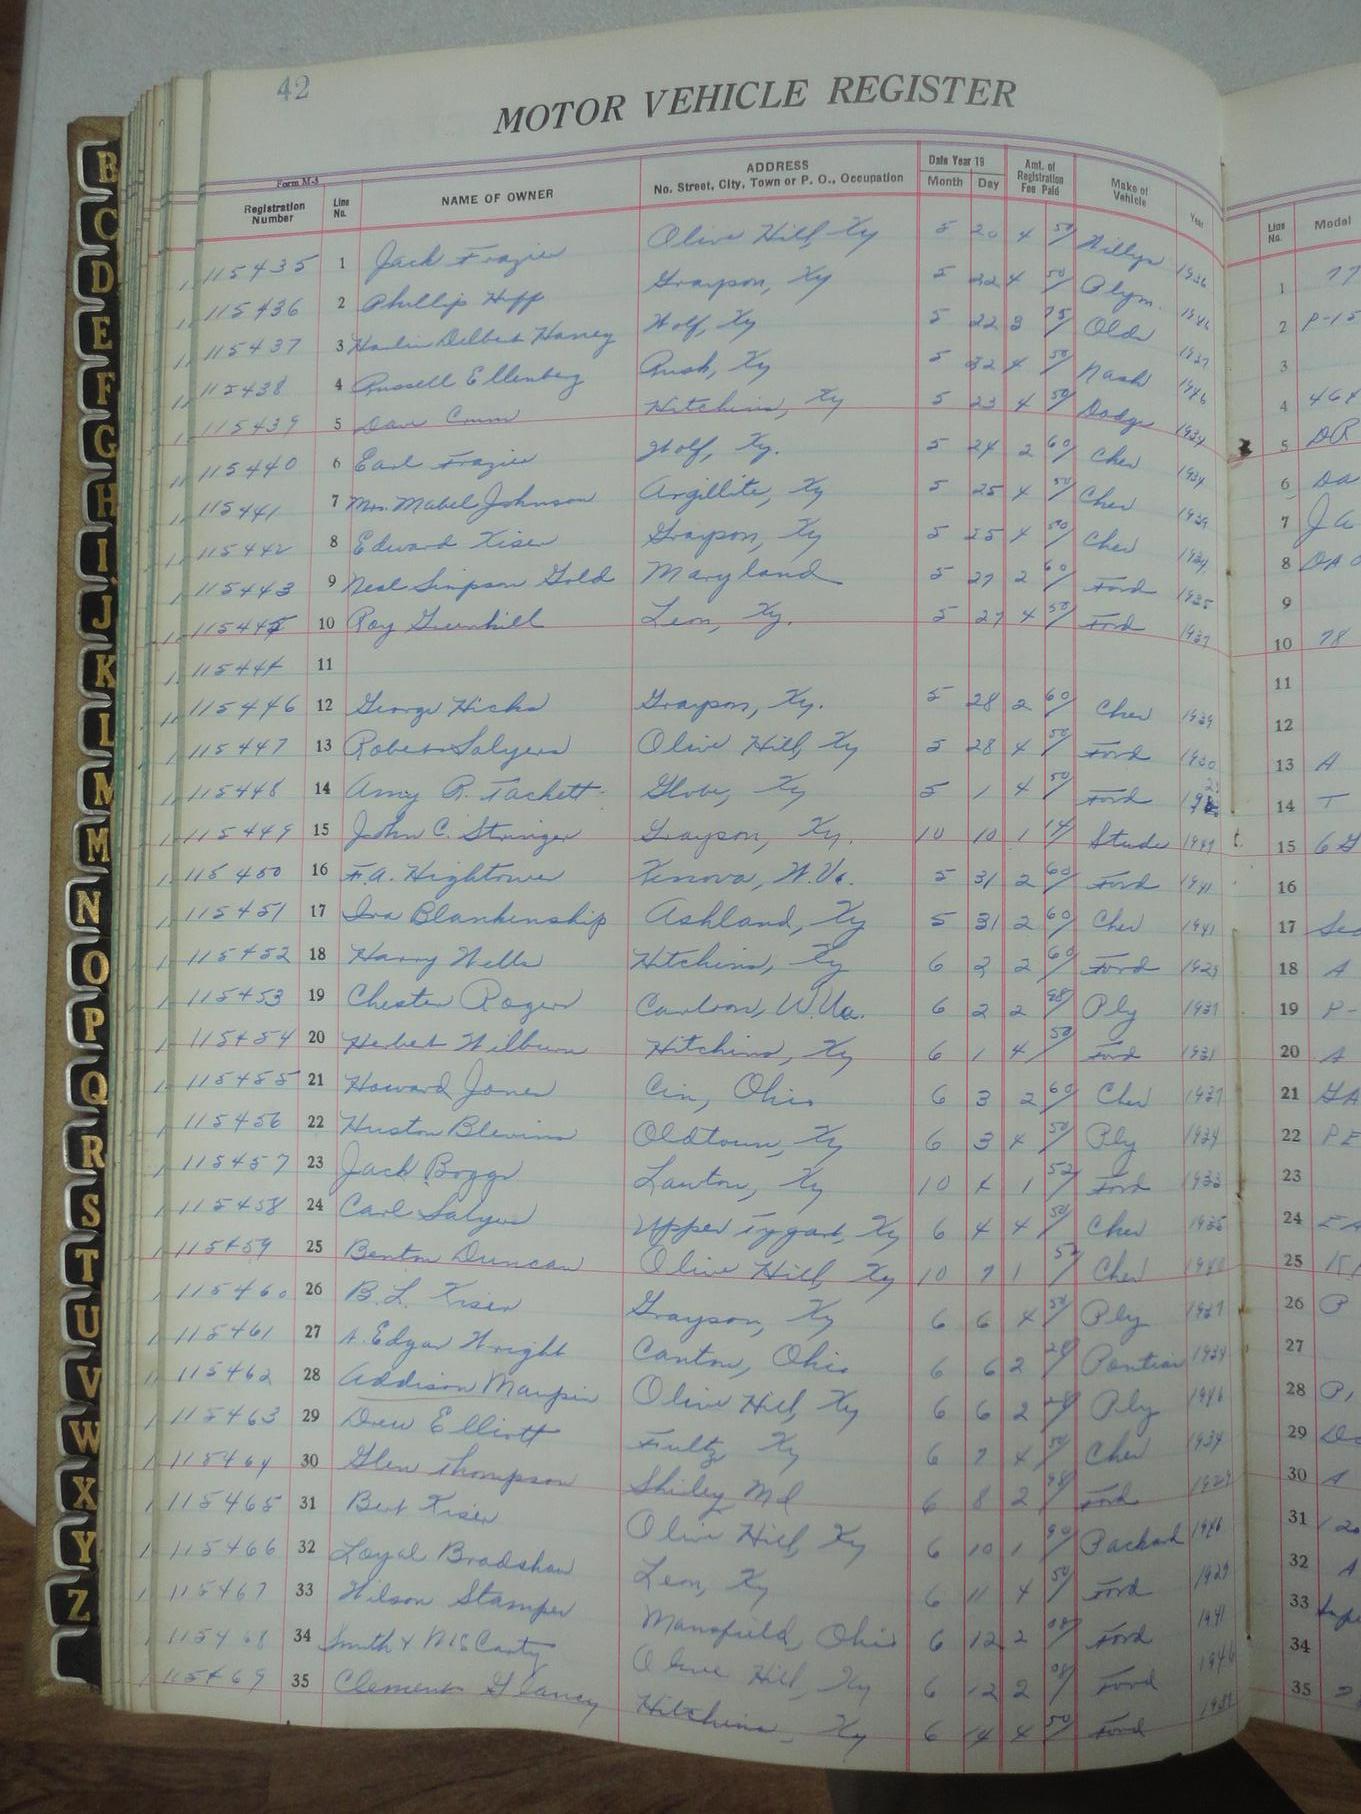 42
MOTOR VEHICLE REGISTER
Form M-5
Registration Number Line No. NAME OF OWNER ADDRESS No. Street, City, Town or P. O., Occupation Date Year 19 Month Day Amt. of Registration Fee Paid Make of Vehicle Year Line No. Model
115435 1 Jack Frazier Olive Hill, Ky 5 20 4 50/ Willys 1936 1 77
115436 2 Phillip Huff Grayson, Ky 5 22 4 50/ Plym. 1946 2 P-15
115437 3 Harlin Delbert Haney Wolf, Ky 5 22 3 75/ Olds 1937 3
115438 4 Russell Ellenberg Rush, Ky 5 22 4 50/ Nash 1946 4 464
115439 5 Dave Hitchins, Ky 5 23 4 50/ Dodge 1934 5 DR
115440 6 Earl Frazier Wolf, Ky. 5 24 2 60/ Chev 1934 6 DA
115441 7 Mrs. Mabel Johnson Argillite, Ky 5 25 4 50/ Chev 1939 7 JA
115442 8 Edward Kiser Grayson, Ky 5 25 4 50/ Chev 1934 8 DA
115443 9 Neal Simpson Gold Maryland 5 27 2 60/ Ford 1935 9
115445 10 Roy Greenhill Leon, Ky. 5 27 4 50/ Ford 1937 10 78
115444 11 11
115446 12 George Hicks Grayson, Ky. 5 28 2 60/ Chev 1939 12
115447 13 Robert Salyers Olive Hill, Ky 5 28 4 50/ Ford 1930 13 A
115448 14 Amy R. Tackett Globe, Ky 5 1 4 50/ Ford 14 T
115449 15 John C. Stringer Grayson, Ky. 10 10 1 14/ Stude 1947 t. 15 6G
115450 16 F.A. Hightower Kenova, W.Va. 5 31 2 60/ Ford 1941 16
115451 17 Ira Blankenship Ashland, Ky 5 31 2 60/ Chev 1941 17
115452 18 Harry Wells Hitchins, Ky 6 2 2 60/ Ford 1929 18 A
115453 19 Chester Roger W.Va. 6 2 2 98/ Ply 1937 19 P-
115454 20 Herbert Wilburn Hitchins, Ky 6 1 4 50/ Ford 1931 20 A
115455 21 Howard Jones Cin, Ohio 6 3 2 60/ Chev 1937 21 GA
115456 22 Huston Blevins Oldtown, Ky 6 3 4 50/ Ply 1934 22 PE
115457 23 Jack Boggs Lawton, Ky 10 4 1 52/ Ford 1933 23
115458 24 Carl Salyers Upper Tygart, Ky 6 4 4 50/ Chev 1935 24 EA
115459 25 Benton Duncan Olive Hill, Ky 10 7 1 52/ Chev 1940 25
115460 26 B.L. Kiser Grayson, Ky 6 6 4 50/ Ply 1937 26 P
115461 27 Edgar Wright Canton, Ohio 6 6 2 28/ Pontiac 1934 27
115462 28 Addison Maupin Olive Hill, Ky 6 6 2 28/ Ply 1946 28 P1
115463 29 Drew Elliott Fultz, Ky 6 7 4 50/ Chev 1934 29
115464 30 Glen Thompson Shirley Md 6 8 2 98/ Ford 1929 30 A
115465 31 Bert Kiser Olive Hill, Ky 6 10 1 90/ Packard 1946 31 120
115466 32 Loyal Bradshaw Leon, Ky 6 11 4 50/ Ford 1929 32 A
115467 33 Wilson Stamper Mansfield, Ohio 6 12 2 08/ Ford 1941 33
115468 34 Smith & McCarty Olive Hill, Ky 6 12 2 08/ Ford 1946 34
115469 35 Clements Glancy Hitchins, Ky 6 14 4 50/ Ford 35
B
C
D
E
F
G
H
I
J
K
L
M
M
N
O
P
Q
R
S
T
U
V
W
X
Y
Z